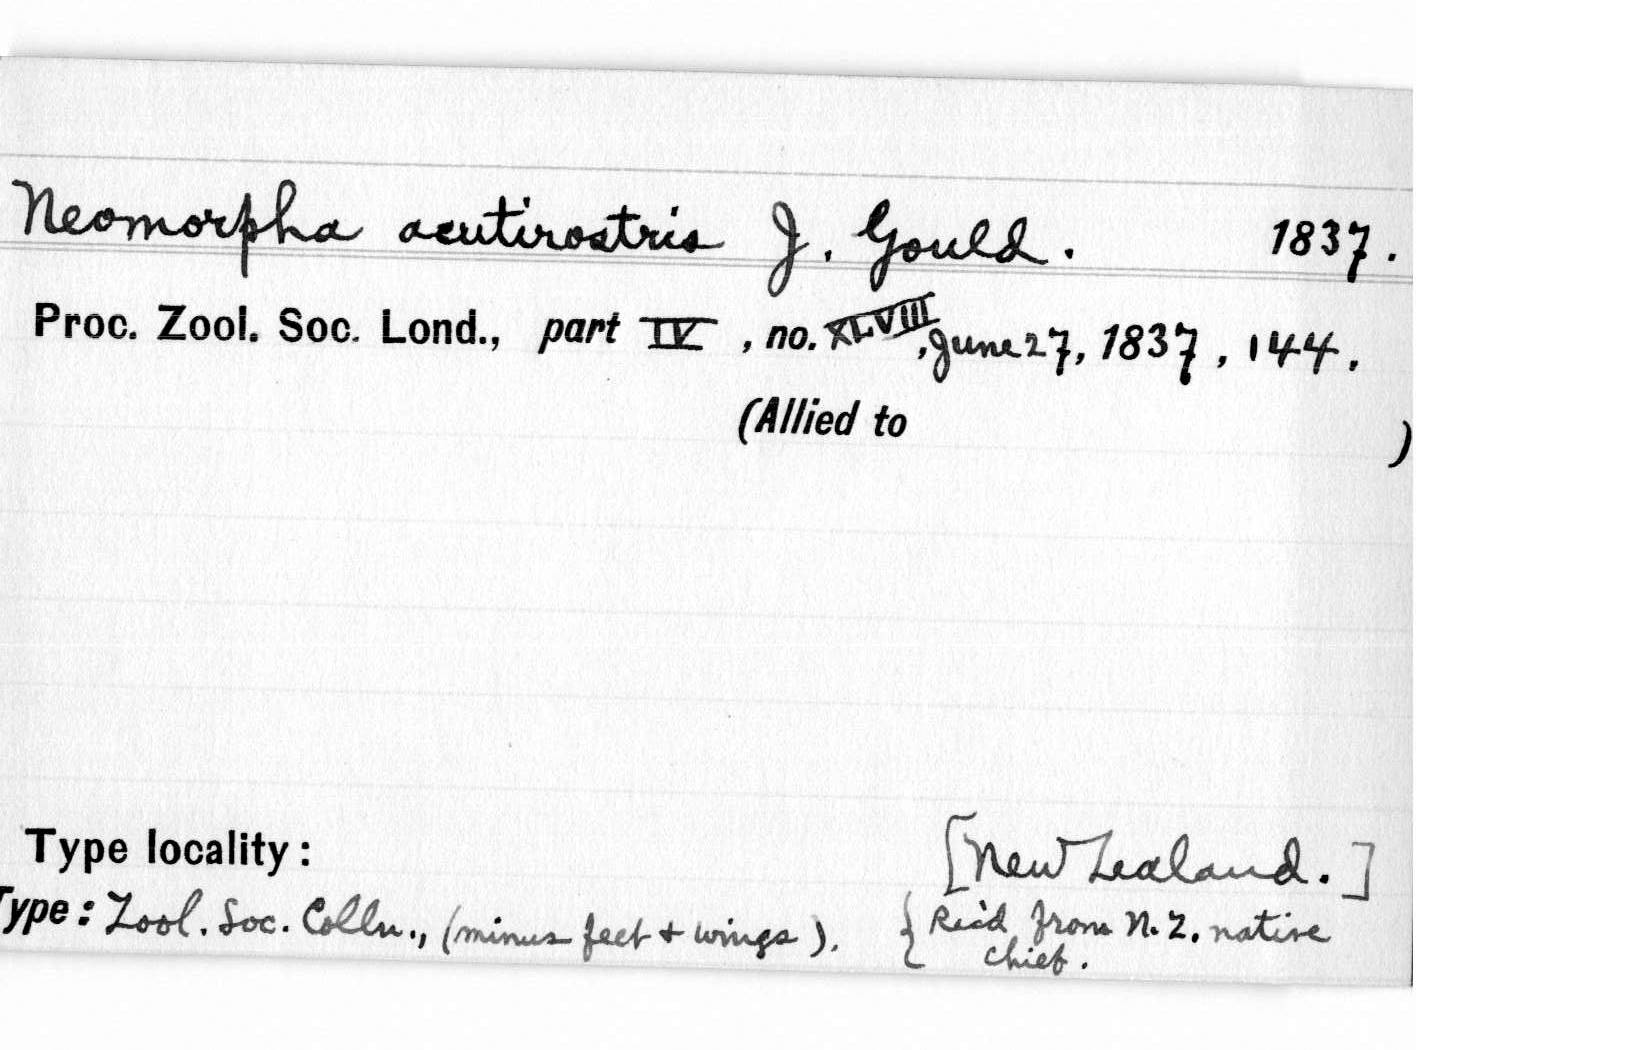 Neomorpha acutirostris J. Gould. 1837.
Proc. Zool. Soc. Lond., part IV, no. XLVIII, June 27, 1837, 144.
(Allied to )
Type locality: [New Zealand.]
Type: Zool. Soc. Colln., (minus feet + wings). { Rec'd from N.Z. native
chief.